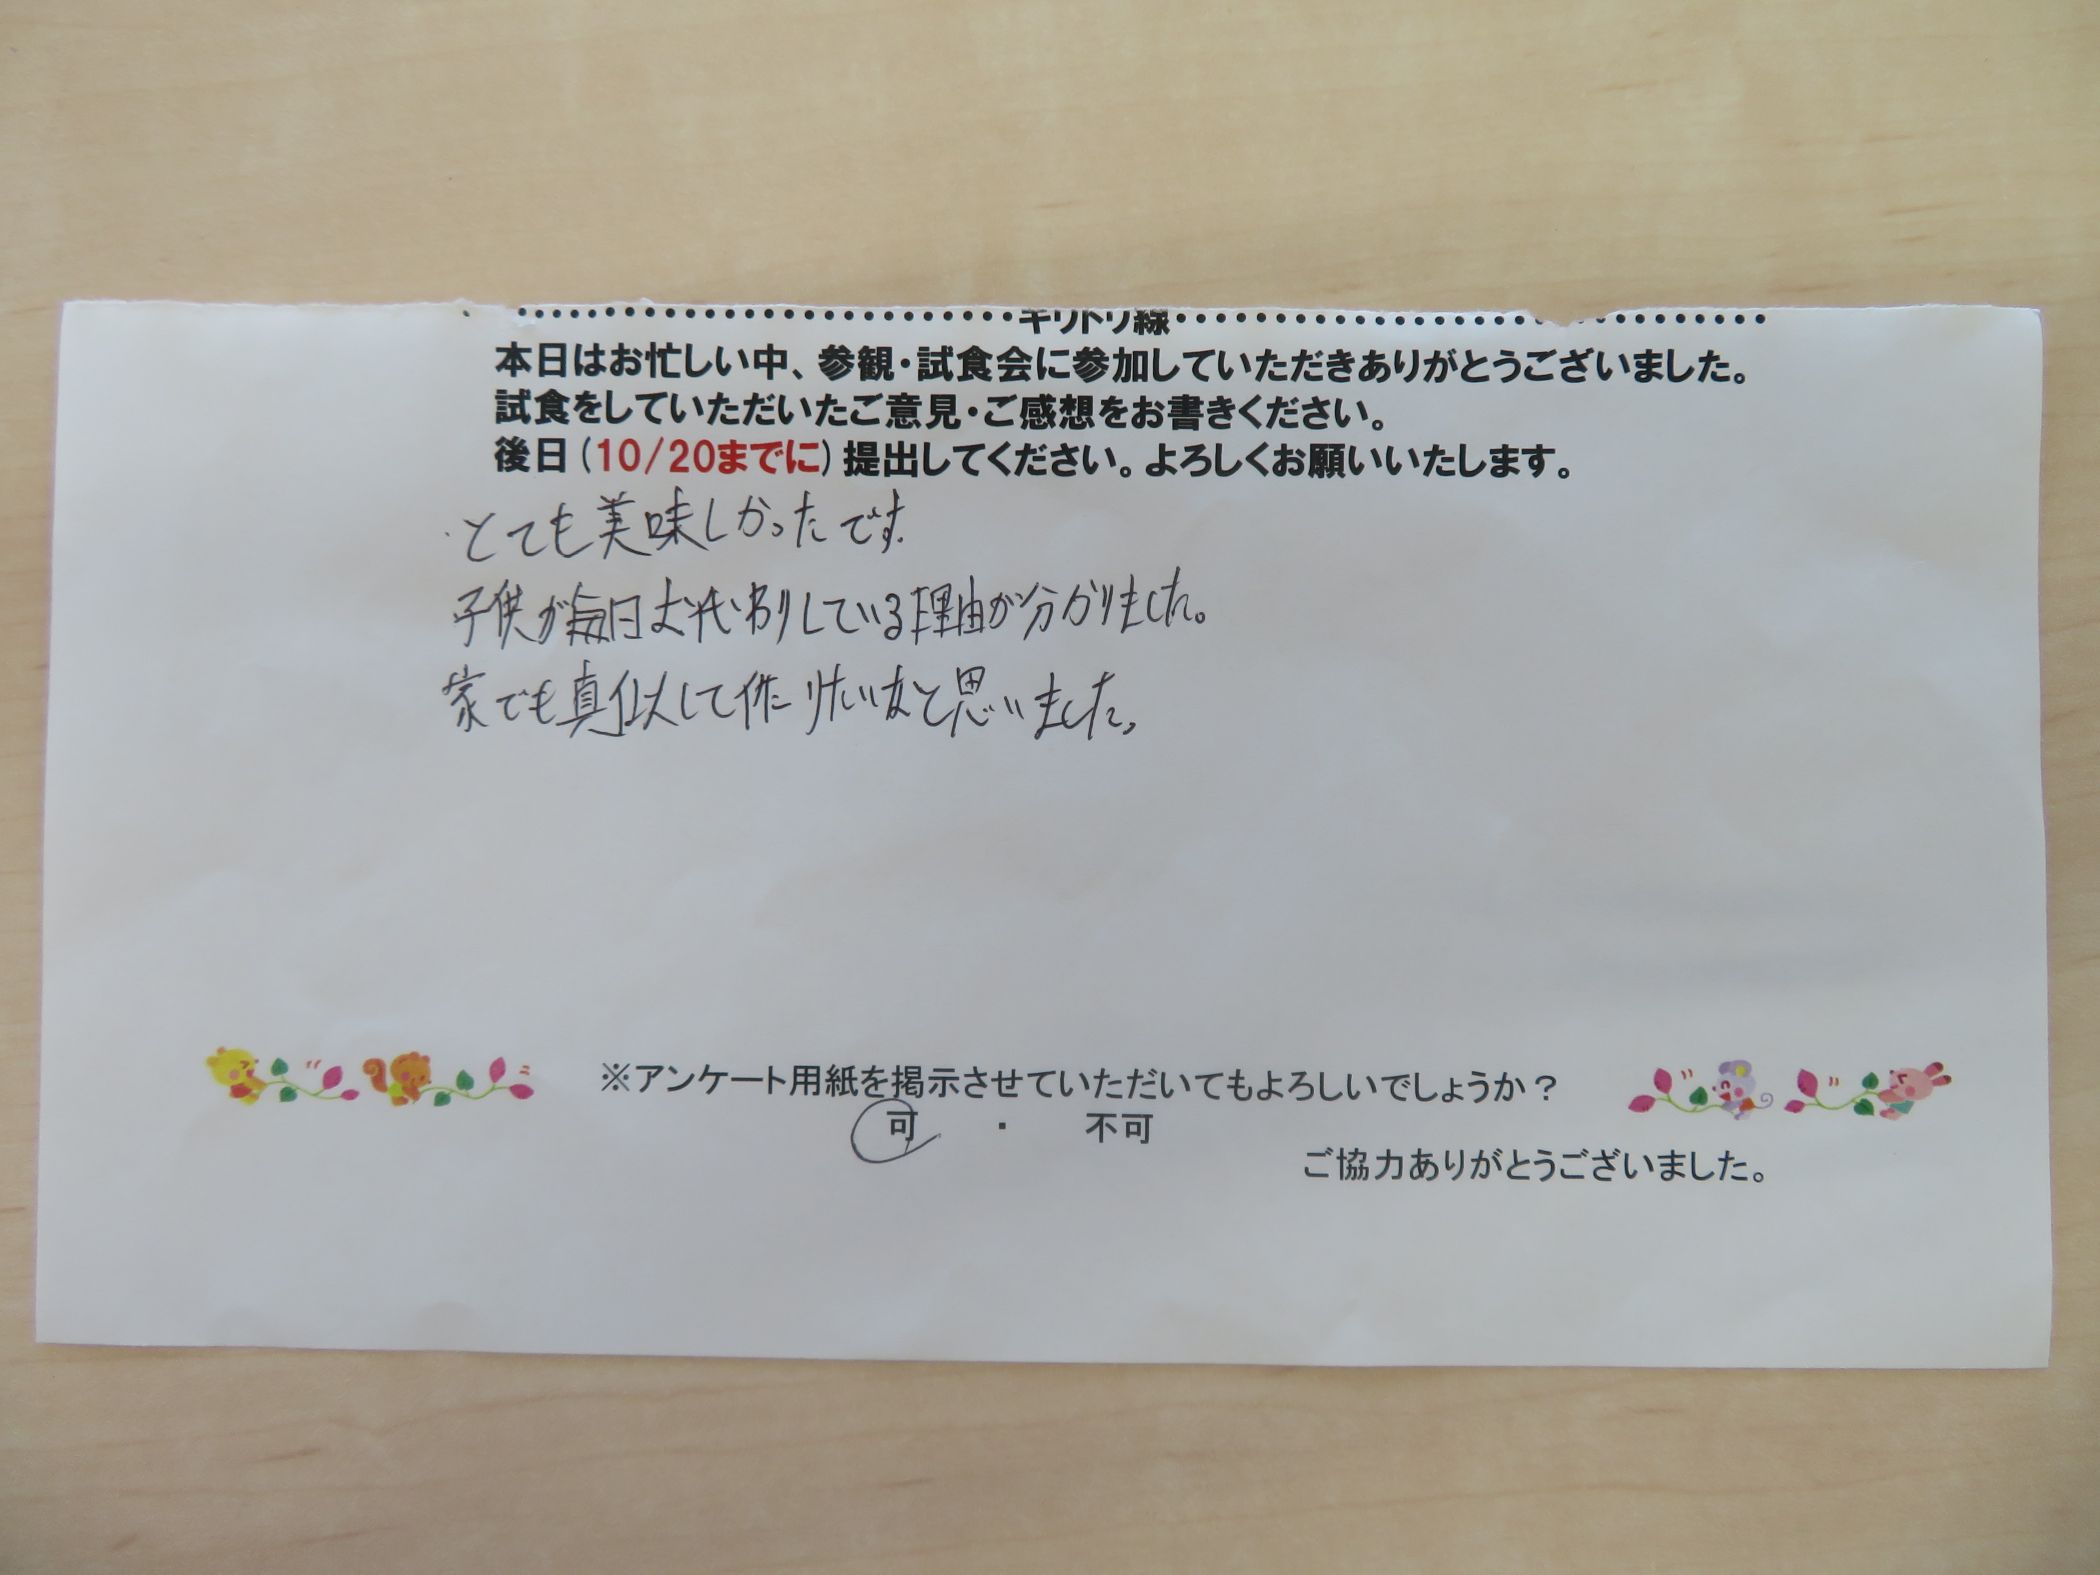 キリトリ線
本日はお忙しい中、参観・試食会に参加していただきありがとうございました。
試食をしていただいたご意見・ご感想をお書きください。
後日（10/20までに）提出してください。よろしくお願いいたします。
・とても美味しかったです。
子供が毎日お代わりしている理由が分かりました。
家でも真似して作りたいなと思いました。
※アンケート用紙を掲示させていただいてもよろしいでしょうか？
可　・　不可
ご協力ありがとうございました。